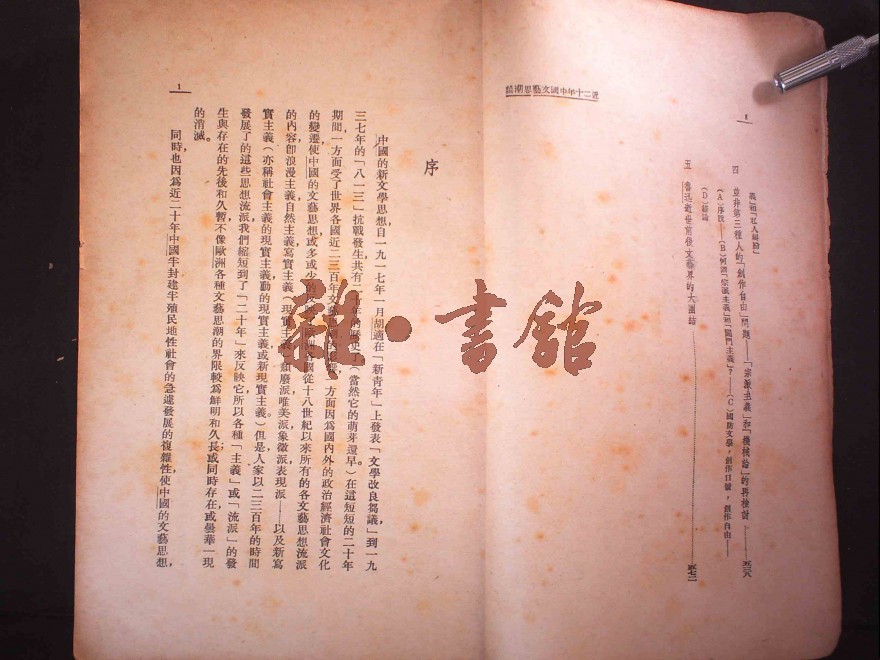 近二十年中國文藝思潮論
8
義」和「私人糾紛」
四 並非第三種人的「創作自由」問題——「宗派主義」和「機械論」的再檢討——五三八
(A)序說——(B)何謂「宗派主義」與「關門主義」?——(C)國防文學,創作口號,創作自由——
(D)結論
五 魯迅逝世前後文藝界的大團結——五七二
序
中國的新文學思想,自一九一七年一月胡適在「新青年」上發表「文學改良芻議」到一九
三七年的「八一三」抗戰發生,共有二十年的歷史了(當然它的萌芽還早)在這短短的二十年
期間一方面受了世界各國近二三百年文藝思一方面因爲國內外的政治經濟社會文化
的變遷,使中國的文藝思想或多或少的從十八世紀以來所有的各文藝思想流派
的內容卽浪漫主義,自然主義,寫實主義(現實主義)頹廢派唯美派象徵派,表現派——以及新寫
實主義(亦稱社會主義的現實主義,動的現實主義,或新現實主義。)但是,人家以二三百年的時間
發展了的這些思想流派,我們縮短到了「二十年」來反映它所以各種「主義」或「流派」的發
生與存在的先後和久暫不像歐洲各種文藝思潮的界限較爲鮮明和久長;或同時存在,或曇華一現
的消滅。
同時也因爲近二十年中國半封建半殖民地性社會的急遽發展的複雜性,使中國的文藝思想,
1
雜·書館